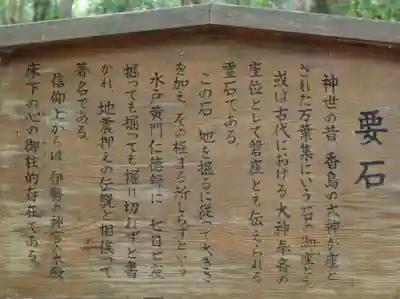 要石
神世の昔 香島の大神が座と
された万葉集にいう石の御座とも
或は古代における大神奉斎の
座位として磐座とも伝えられる
霊石である
この石 地を掘るに従って大きさ
を加え その極まる所しらずという
水戸黄門仁徳録に 七日七夜
掘っても掘っても掘り切れずと書
かれ 地震押えの伝説と相俟って
著名である
信仰上からは 伊勢の神宮の本殿
床下の心の御柱的存在である。